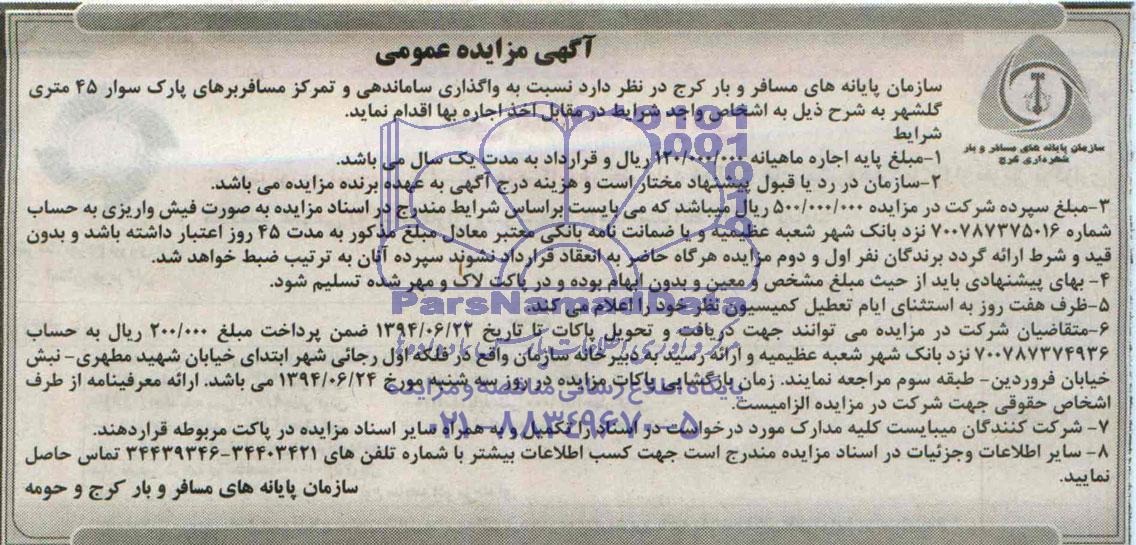 آگهی مزایده عمومی
سازمان پایانه های مسافر و بار کرج در نظر دارد نسبت به واگذاری ساماندهی و تمرکز مسافربرهای پارک سوار ۴۵ متری
گلشهر به شرح ذیل به اشخاص واجد شرایط در مقابل اخذ اجاره بها اقدام نماید.
شرایط
۱-مبلغ پایه اجاره ماهیانه ۱۲۰/۰۰۰/۰۰۰ ریال و قرارداد به مدت یک سال می باشد.
۲-سازمان در رد یا قبول پیشنهاد مختار است و هزینه درج آگهی به عهده برنده مزایده می باشد.
۳-مبلغ سپرده شرکت در مزایده ۵۰۰/۰۰۰/۰۰۰ ریال میباشد که می بایست براساس شرایط مندرج در اسناد مزایده به صورت فیش واریزی به حساب
شماره ۷۰۰۷۸۷۳۷۵۰۱۶ نزد بانک شهر شعبه عظیمیه و یا ضمانت نامه بانکی معتبر معادل مبلغ مذکور به مدت ۴۵ روز اعتبار داشته باشد و بدون
قید و شرط ارائه گردد برندگان نفر اول و دوم مزایده هرگاه حاضر به انعقاد قرارداد نشوند سپرده آنان به ترتیب ضبط خواهد شد.
۴- بهای پیشنهادی باید از حیث مبلغ مشخص و معین و بدون ابهام بوده و در پاکت لاک و مهر شده تسلیم شود.
۵-ظرف هفت روز به استثنای ایام تعطیل کمیسیون نظر خود را اعلام می کند.
۶-متقاضیان شرکت در مزایده می توانند جهت دریافت و تحویل پاکات تا تاریخ ۱۳۹۴/۰۶/۲۲ ضمن پرداخت مبلغ ۲۰۰/۰۰۰ ریال به حساب
۷۰۰۷۸۷۳۷۴۹۳۶ نزد بانک شهر شعبه عظیمیه و ارائه رسید به دبیرخانه سازمان واقع در فلکه اول رجائی شهر ابتدای خیابان شهید مطهری- نبش
خیابان فروردین- طبقه سوم مراجعه نمایند. زمان بازگشایی پاکات مزایده در روز سه شنبه مورخ ۱۳۹۴/۰۶/۲۴ می باشد. ارائه معرفینامه از طرف
اشخاص حقوقی جهت شرکت در مزایده الزامیست.
۷- شرکت کنندگان میبایست کلیه مدارک مورد درخواست در اسناد را تکمیل و به همراه سایر اسناد مزایده در پاکت مربوطه قراردهند.
۸- سایر اطلاعات وجزئیات در اسناد مزایده مندرج است جهت کسب اطلاعات بیشتر با شماره تلفن های ۳۴۴۰۳۴۲۱-۳۴۴۳۹۳۴۶ تماس حاصل
نمایید.
سازمان پایانه های مسافر و بار کرج و حومه
سازمان پایانه های مسافر و بار
شهرداری کرج
ParsNamadData
پایگاه اطلاع رسانی مناقصه و مزایده
۰۲۱-۸۸۳۴۹۶۷۰-۵